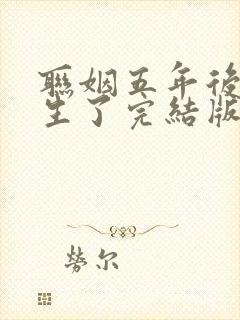 聯姻五年後
生了完結版
勞尔